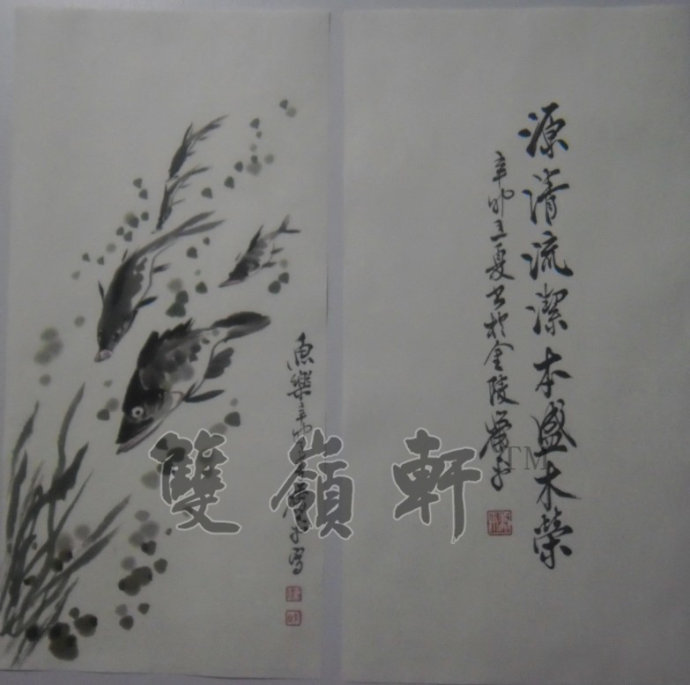 源清流潔本盛木榮
辛卯立夏書於金陵
魚樂辛卯
雙嶺軒TM